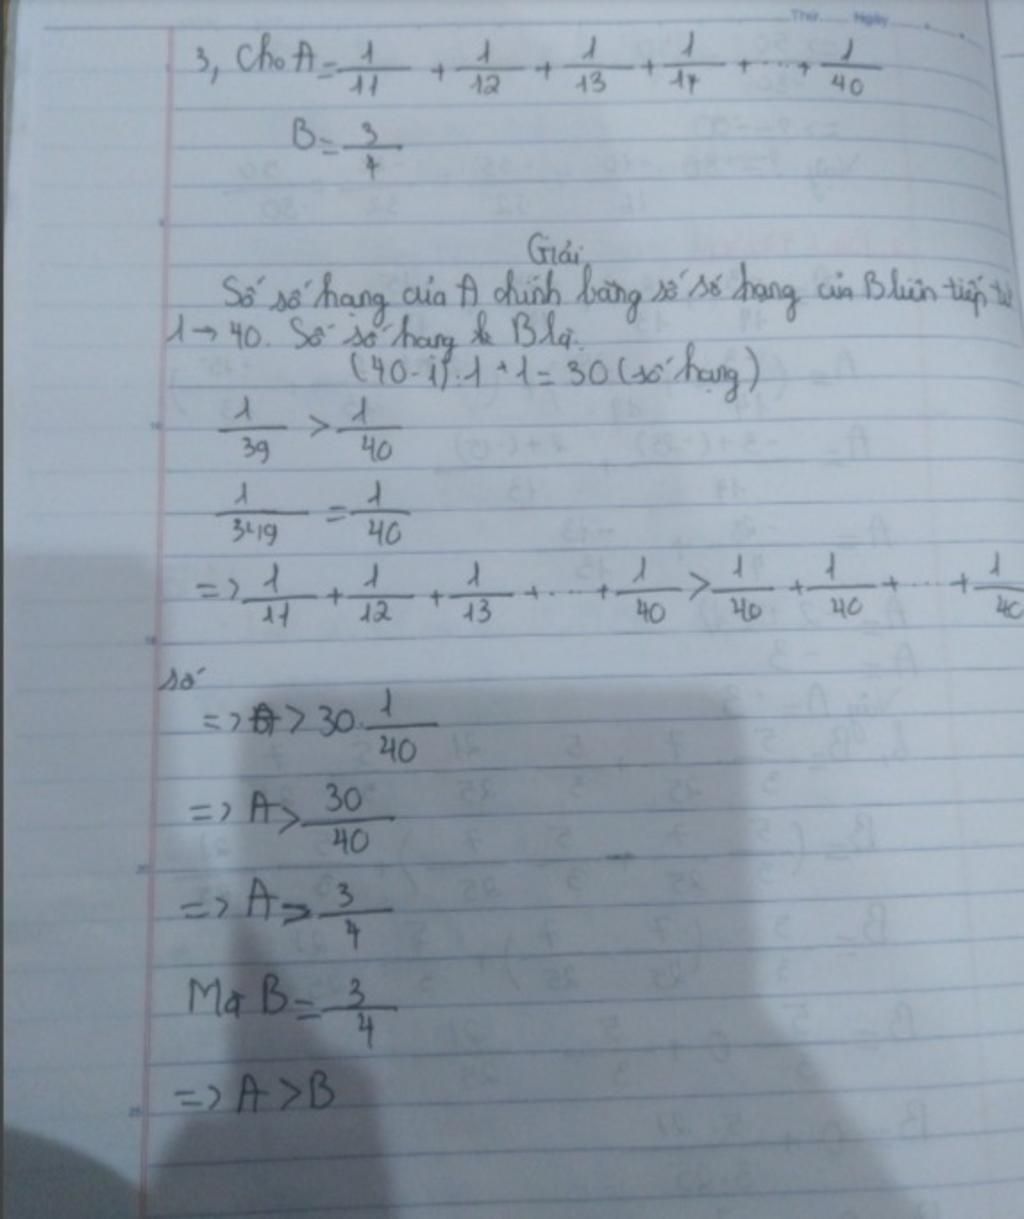 Thứ Ngày
3, Cho A = 1/11 + 1/12 + 1/13 + 1/14 + ... + 1/40
B = 3/4
Giải
Số số hạng của A chính bằng số số hạng của B liên tiếp từ
1 → 40. Số số hạng B là:
(40 - 1) : 1 + 1 = 30 (số hạng)
1/39 > 1/40
= 1/40
=> 1/11 + 1/12 + 1/13 + ... + 1/40 > 1/40 + 1/40 + ... + 1/40
số
=> A > 30 . 1/40
=> A > 30/40
=> A > 3/4
Mà B = 3/4
=> A > B